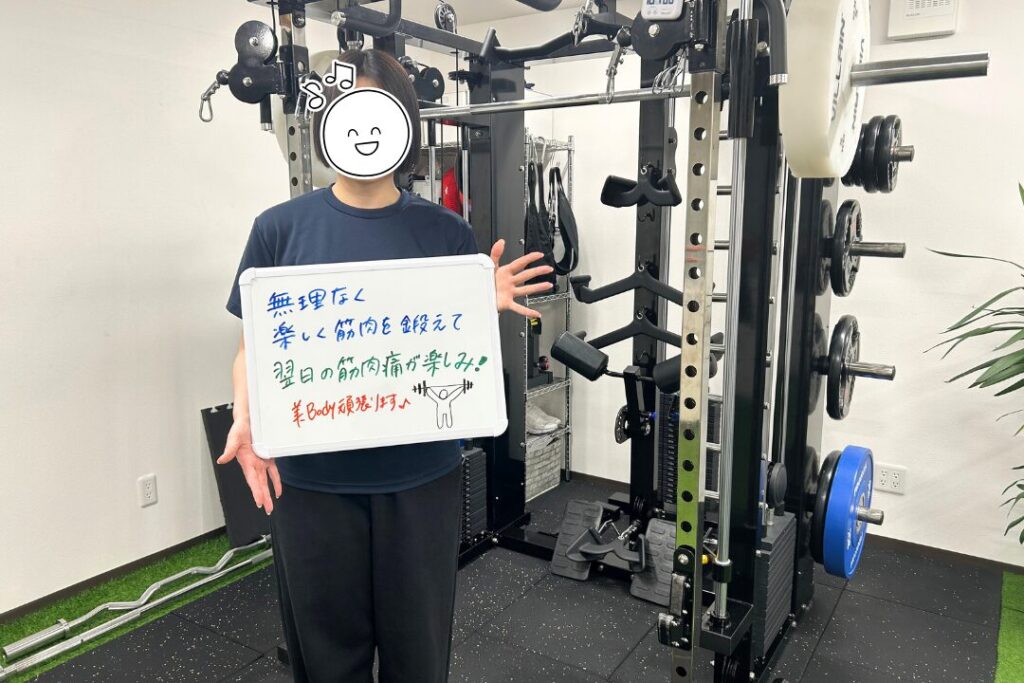 無理なく
楽しく筋肉を鍛えて
翌日の筋肉痛が楽しみ!
美Body頑張ります♪